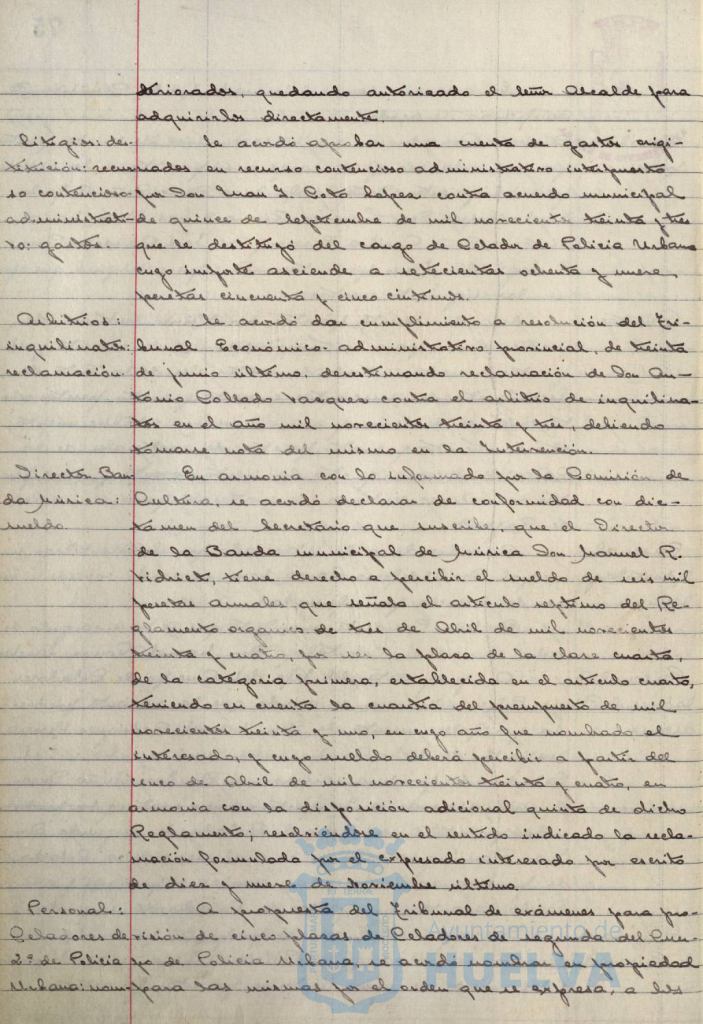 teriorados, quedando autorizado el señor Alcalde para
adquirirlos directamente.
Litigios: des-
titución: recur-
so contencioso-
administrati-
vo: gastos.
Se acordó aprobar una cuenta de gastos origi-
nados en recurso contencioso administrativo interpuesto
por Don Juan J. Coto Lopez contra acuerdo municipal
de quince de Septiembre de mil novecientos treinta y tres
que le destituyó del cargo de Celador de Policía Urbana
cuyo importe asciende a setecientas ochenta y nueve
pesetas cincuenta y cinco céntimos.
Arbitrios:
inquilinatos:
reclamación.
Se acordó dar cumplimiento a resolución del Tri-
bunal Económico-administrativo provincial, de treinta
de junio último, desestimando reclamación de Don An-
tonio Collado Vasquez contra el arbitrio de inquilina-
tos en el año mil novecientos treinta y tres, debiendo
tomarse nota del mismo en la Intervención.
Director Ban-
da Música:
sueldo.
En armonia con lo informado por la Comisión de
Cultura, se acordó declarar de conformidad con dic-
tamen del Secretario que suscribe, que el Director
de la Banda municipal de Música Don Manuel R.
Vidriet, tiene derecho a percibir el sueldo de seis mil
pesetas anuales que señala el artículo septimo del Re-
glamento organico de tres de Abril de mil novecientos
treinta y cuatro, por ser la plaza de la clase cuarta,
de la categoría primera, establecida en el artículo cuarto,
teniendo en cuenta la cuantía del presupuesto de mil
novecientos treinta y uno, en cuyo año fue nombrado el
interesado, y cuyo sueldo deberá percibir a partir del
cinco de Abril de mil novecientos treinta y cuatro, en
armonia con la disposición adicional quinta de dicho
Reglamento; resolviéndose en el sentido indicado la recla-
mación formulada por el expresado interesado por escrito
de diez y nueve de Noviembre último.
Personal:
Celadores de
2ª de Policía
Urbana: nom-
A propuesta del Tribunal de exámenes para pro-
visión de cinco plazas de Celadores de segunda del Cuer-
po de Policía Urbana, se acordó nombrar en propiedad
para las mismas por el orden que se expresa, a los
Ayuntamiento de
HUELVA